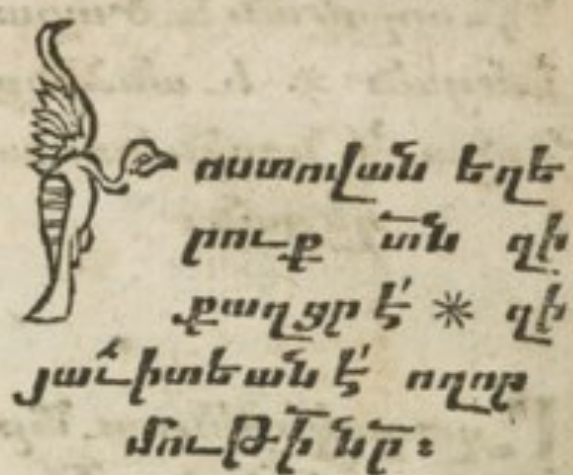 Խոստովան եղե
րուք տն զի
քաղցր է * զի
յաւիտեան է ողոր
մութի նր։